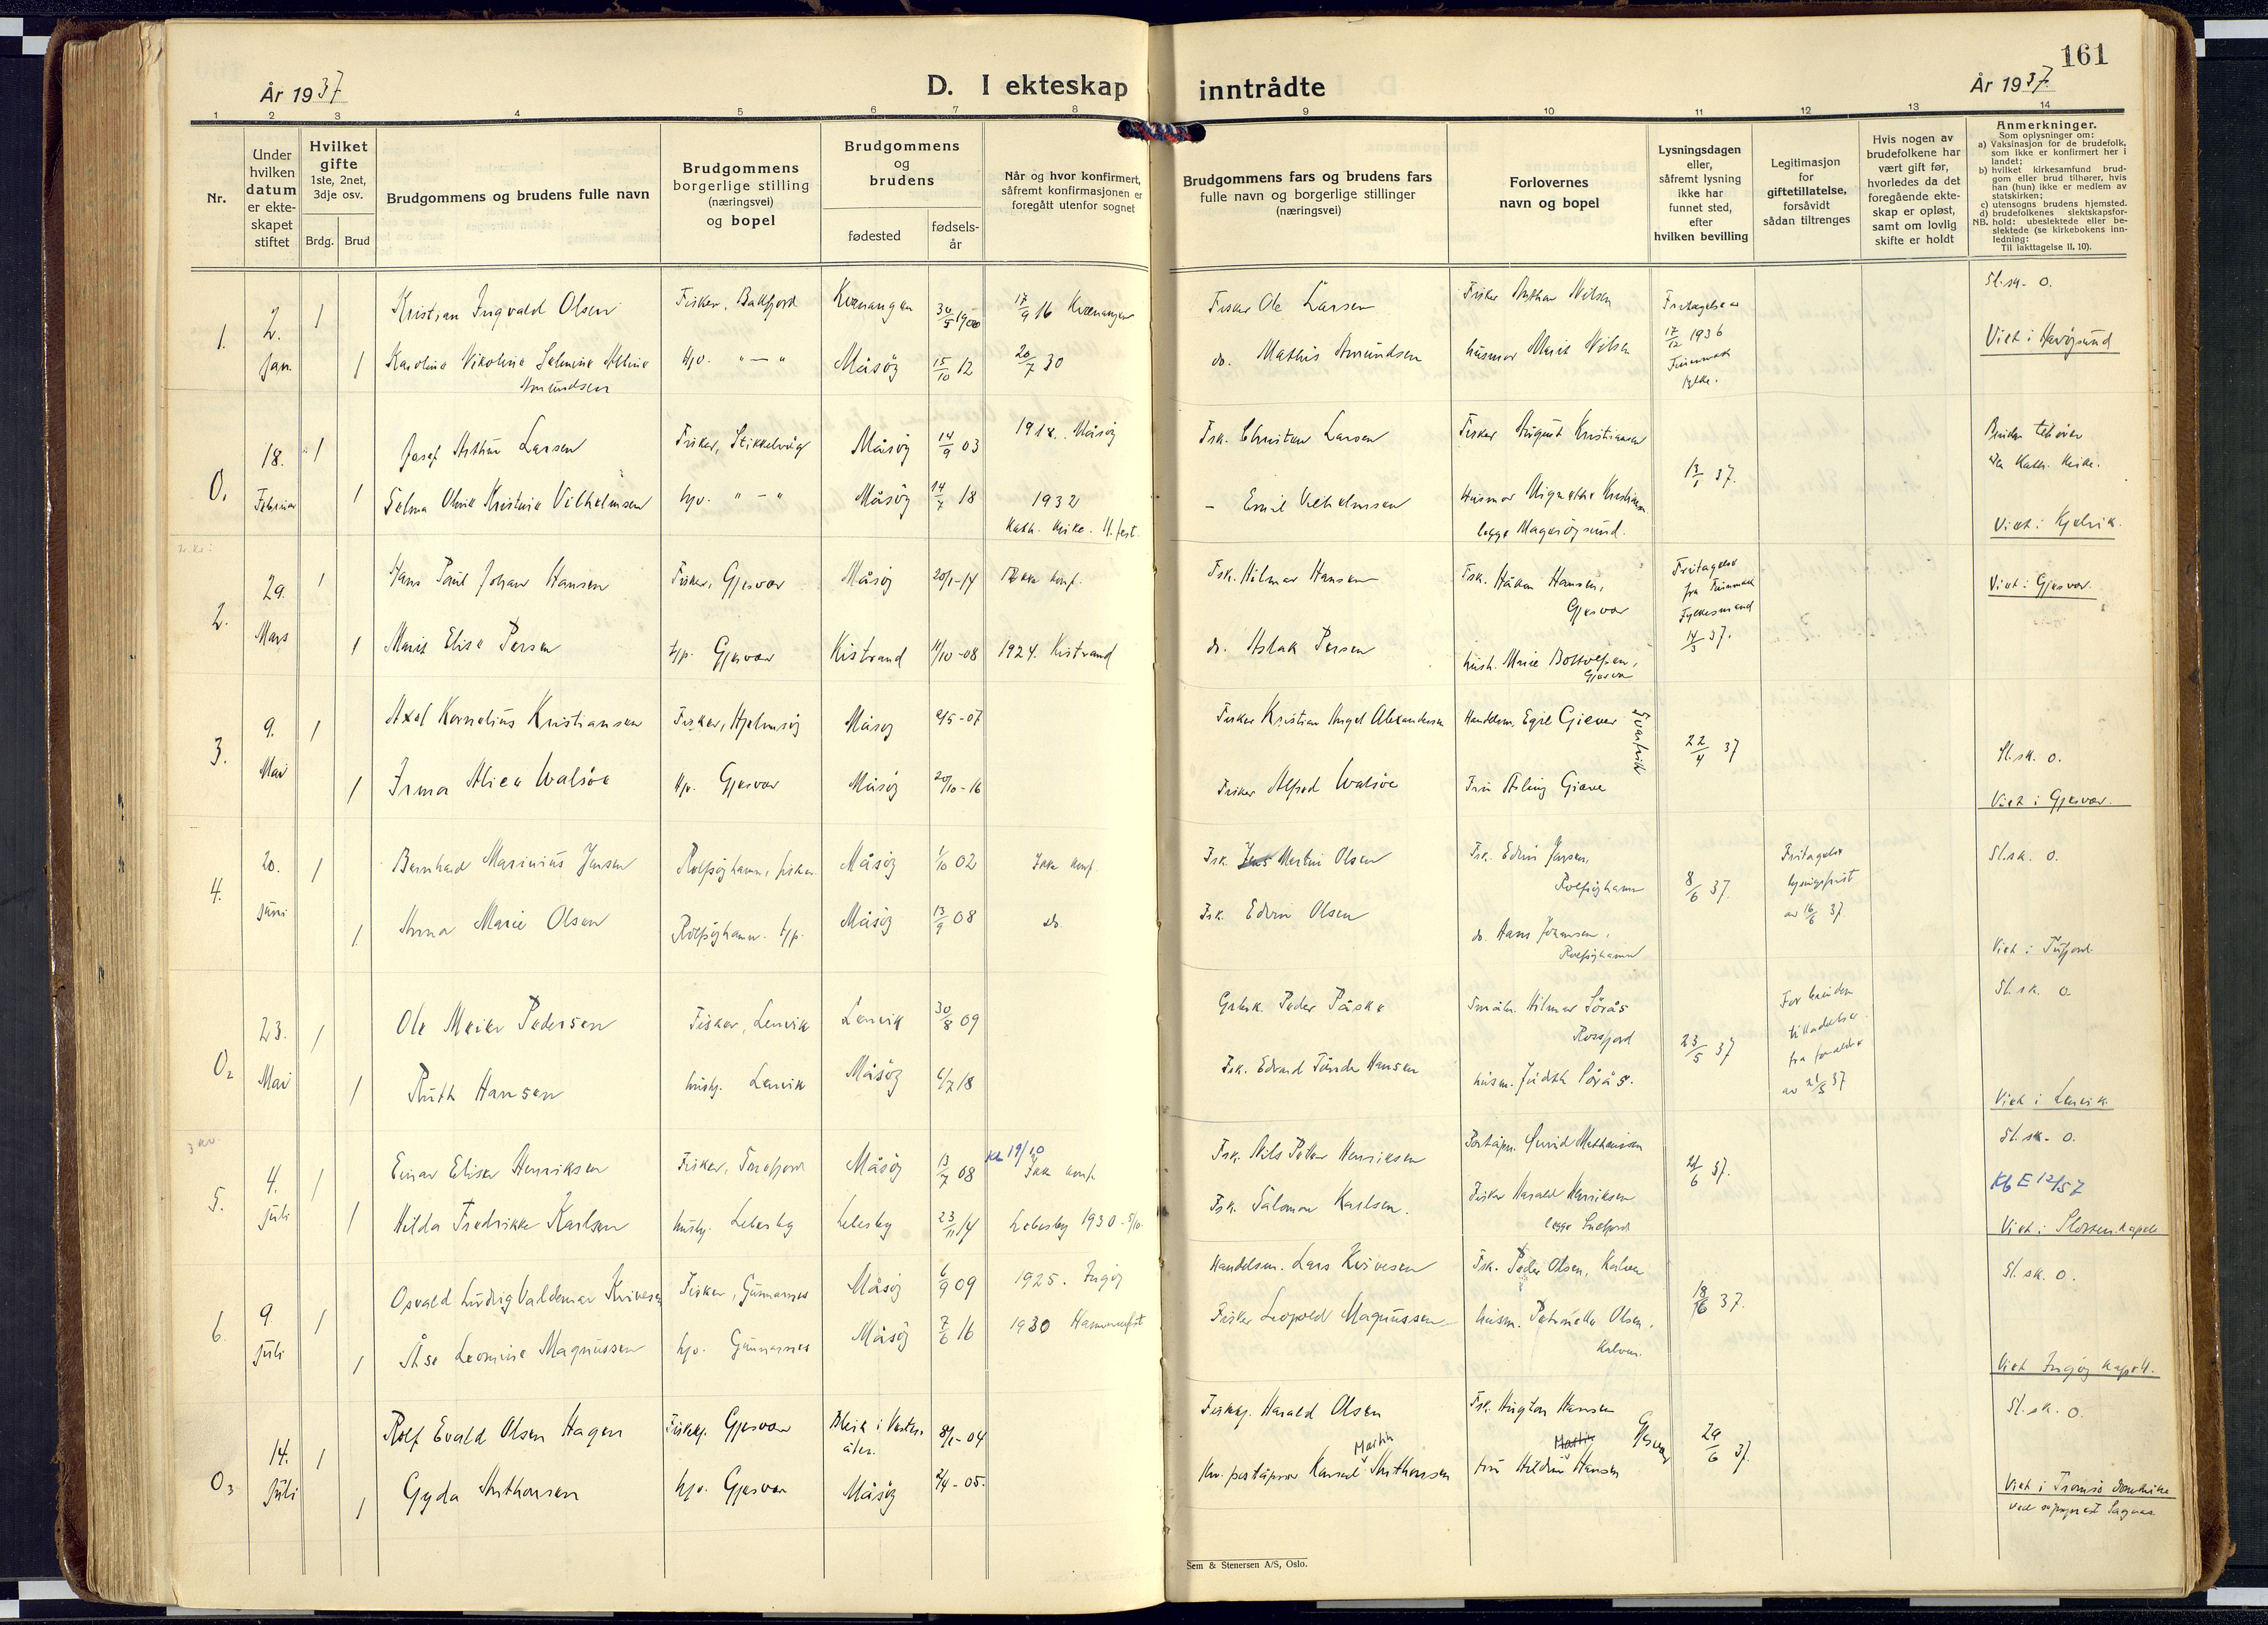 161
År 1937
D. I ekteskap inntrådte
År 1937.
1 2 3 4 5 6 7 8 9 10 11 12 13 14
Nr.
Under hvilken datum er ekte-skapet stiftet
Hvilket gifte 1ste, 2net, 3dje osv.
Brdg. Brud
Brudgommens og brudens fulle navn
Brudgommens borgerlige stilling (næringsvei) og bopel
Brudgommens og brudens
fødested
fødsels-år
Når og hvor konfirmert, såfremt konfirmasjonen er foregått utenfor sognet
Brudgommens fars og brudens fars fulle navn og borgerlige stillinger (næringsvei)
Forlovernes navn og bopel
Lysningsdagen eller, såfremt lysning ikke har funnet sted, efter hvilken bevilling
Legitimasjon for giftetillatelse, forsåvidt sådan tiltrenges
Hvis nogen av brudefolkene har vært gift før, hvorledes da det foregående ekte-skap er opløst, samt om lovlig skifte er holdt
Anmerkninger.
Som oplysninger om:
a) Vaksinasjon for de brudefolk, som ikke er konfirmert her i landet;
b) hvilket kirkesamfund brud-gom eller brud tilhører, hvis han (hun) ikke er medlem av statskirken;
c) utensogns brudens hjemsted.
d) brudefolkenes slektskapsfor-hold: ubeslektede eller be-slektede (se kirkebokens inn-ledning:
NB. Til iakttagelse II. 10).
1. 2. Jan. 1 Kristian Ingvald Olsen Fisker, Bakfjord Kvænangen 30/5 1900 17/9 16 Kvænangen Fisker Ole Larsen Fisker Nilsen Fritagelse 17/12 1936 Finnmark fylke. Sl.sk. o.
1 Karoline Nikoline Amundsen Hjv. " — " Måsöy 15/10 12 20/7 30 do. Mathis Amundsen Marit Nilsen Viet i Havöysund
O1 18. Februar 1 Josef Arthur Larsen Fisker, Stikkelvåg Måsöy 14/9 03 1918. Måsöy Fsk. Christian Larsen Fisker August Kristiansen 13/1 37. Bruden tilhører Kath. kirke.
1 Selma Olivie Kristine Vilhelmsen hjv. " — " Måsöy 14/7 18 1932 Kath. kirke. H.fest. – Emil Vilhelmsen Kristiansen begge Magerøysund. Viet i Kjelvik.
2. 29. Mars 1 Hans Paul Johan Hansen Fisker, Gjesvær Måsöy 20/1-14 Ikke konf. Fsk. Hilmar Hansen Fsk. Håkon Hansen, Gjesvær Fritagelse fra Finnmark Fylkesmand 14/3 37. Viet i Gjesvær.
1 Marit Elise Persen Hjv. Gjesvær Kistrand 11/10-08 1924. Kistrand do. Aslak Persen hush. Marie Bottolfsen, Gjesvær
3. 9. Mai 1 Axel Kornelius Kristiansen Fisker, Hjelmsöy Måsöy 2/5-07 Fisker Kristian Angel Alexandersen Handelsm. Egil Giæver Svartvik 22/4 37 Sl.sk. o.
1 Irma Alice Walsöe Hjv. Gjesvær Måsöy 20/10-16 Fisker Alfred Walsöe Fru Giæver Viet i Gjesvær.
4. 20. Juni 1 Bernhard Marinius Jensen Rolfsöyhamn, fisker Måsöy 1/10 02 Ikke konf. Fsk. Jens Martin Olsen Fsk. Edvin Jensen, Rolfsöyhamn 8/6 37. Fritagelse lysningsfrist av 16/6 37. Sl.sk. o.
1 Anna Marie Olsen Rolfsöyhamn. Hjv. Måsöy 13/9 08 do. Fsk. Edvin Olsen do. Hans Johansen, Rolfsöyhamn Viet i Tufjord
O2 23. Mai 1 Ole Meier Pedersen Fisker, Lenvik Lenvik 30/8 09 Gårdsk. Peder Påske Småbr. Hilmar Sörås Rossfjord 23/5 37 For bruden tilladelse fra foreldre av 21/5 37 Sl.sk. o
1 Ruth Hansen hushj. Lenvik Måsöy 6/7 18 Fsk. Edvard Hansen husm. Judith Sörås. Viet i Lenvik.
5. 4. Juli 1 Einar Elisar Henriksen Fisker, Snefjord Måsöy 13/7 08 Ikke konf. Fsk. Nils Peder Henriksen Poståpn. Mathisen 21/6 37. Sl.sk. o. Kb E 12/57
1 Hilda Fredrikke Karlsen hushj. Lebesby Lebesby 23/11 14 Lebesby 1930 Fsk. Salomon Karlsen. Fisker Harald Henriksen begge Snefjord Viet i Slotten kapell
6. 9. Juli 1 Osvald Ludvig Valdemar Kvivesen Fisker, Gunnarnes Måsöy 6/9 09 1925. Ingöy Handelsm. Lars Kvivesen Fsk. Peder Olsen, Kalven 18/6 37. Sl.sk. o.
1 Åse Leonine Magnussen hjv. Gunnarnes Måsöy 7/6 16 1930 Hammerfest Fisker Leopold Magnussen husm. Petronella Olsen. Kalven. Viet Ingöy kapell.
O3 14. Juli 1 Rolf Evald Olsen Hagen Fiskekj. Gjesvær Bleik i Vesterålen. 8/1-04 Fiskekj. Harald Olsen Fsk. Hansen 29/6 37. Sl.sk. o.
1 Gyda Anthonsen hjv. Gjesvær Måsöy 2/4-05. poståpner Konrad Martin Anthonsen fru Hansen Gjesvær Viet i Tromsö domkirke
Sem & Stenersen A/S, Oslo.